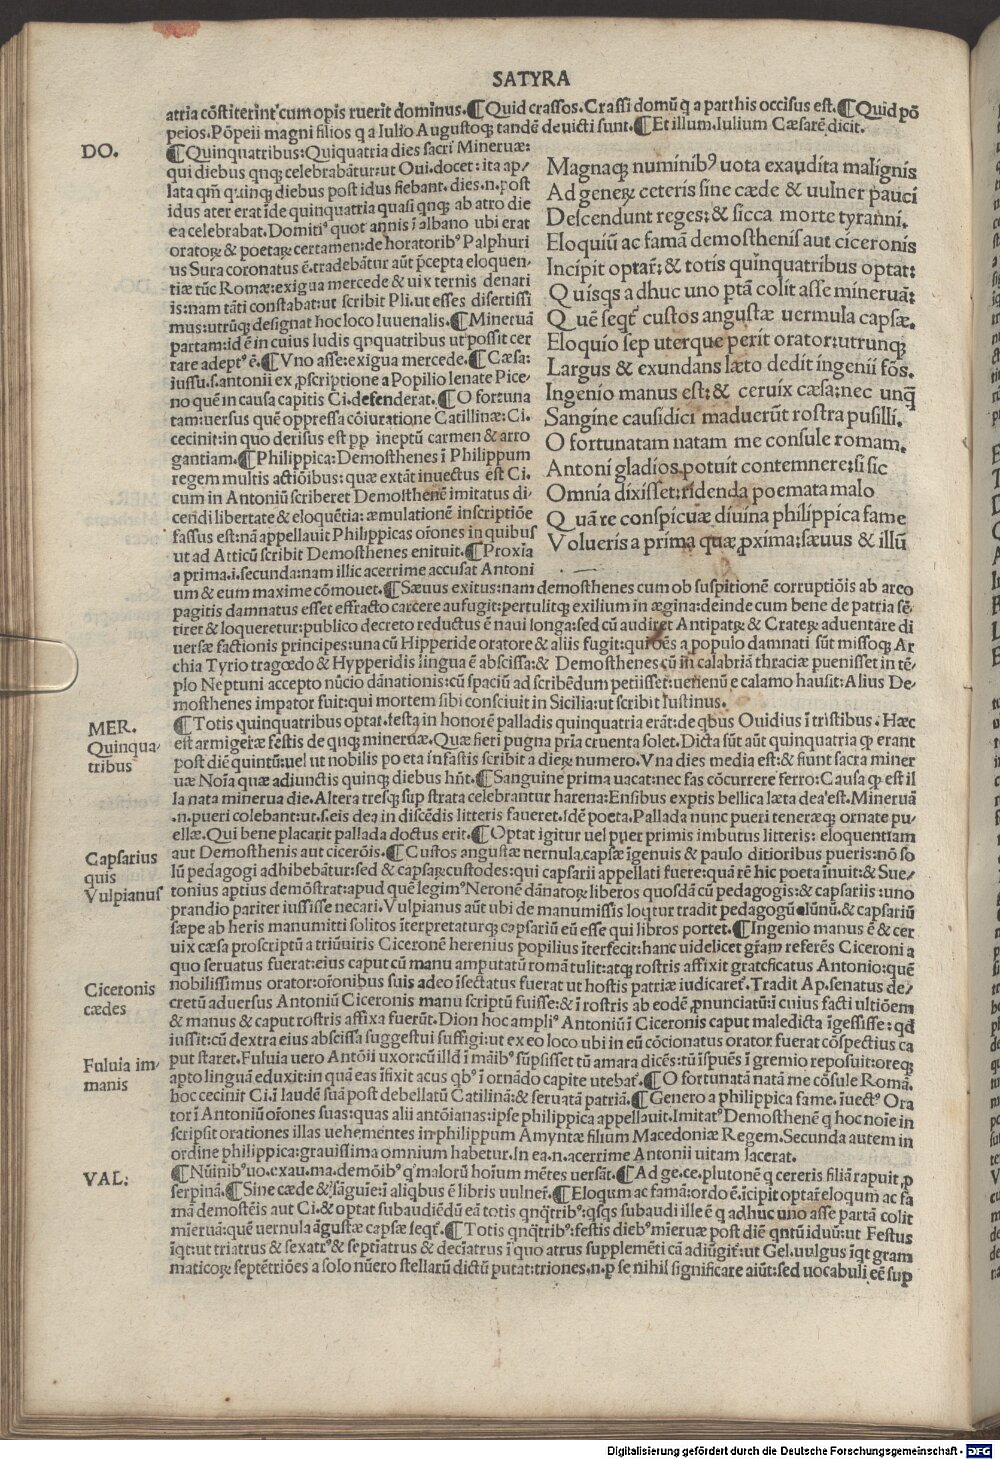 SATYRA
atria cõstiterint' cum opis ruerit dominus.¶Quid crassos.Crassi domũ q a parthis occisus est.¶Quid põ
peios.Põpeii magni filios q a Iulio Augustoq; tandẽ deuicti sunt.¶Et illum.Iulium Cæsarẽ dicit.
DO.
¶Quinquatribus:Quiquatria dies sacri Mineruæ:
qui diebus qnq; celebrabãtur:ut Oui.docet:ita ap/
lata qm̃ quinq; diebus post idus fiebant.dies.n.post
idus ater erat ĩde quinquatria quasi qnq; ab atro die
ea celebrabat.Domitiꝰ quot annis ĩ albano ubi erat
oratoꝝ & poetaꝝ certamen:de horatoribꝰ Palphuri
us Sura coronatus ẽ.tradebãtur aũt p̃cepta eloquen/
tiæ tũc Romæ:exigua mercede & uix ternis denari
is:nam tãti constabat:ut scribit Pli.ut esses disertissi
mus:utrũq; designat hoc loco Iuuenalis.¶Mineruã
partam:id ẽ in cuius ludis qnquatribus ut possit cer
tare adeptꝰ ẽ.¶Vno asse:exigua mercede.¶Cæsa:
iussu.s.antonii ex ꝓscriptione a Popilio lenate Pice/
no quẽ in causa capitis Ci.defenderat.¶O fortuna
tam:uersus quẽ oppressa cõiuratione Catillinæ:Ci.
cecinit:in quo derisus est pp ineptũ carmen & arro
gantiam.¶Philippica:Demosthenes ĩ Philippum
regem multis actiõibus:quæ extãt inuectus est Ci.
cum in Antoniũ scriberet Demosthenẽ imitatus di/
cendi libertate & eloquẽtia:æmulationẽ inscriptiõe
fassus est:nã appellauit Philippicas or̃ones in quibus
ut ad Atticũ scribit Demosthenes enituit.¶Proxia
a prima.i.secunda:nam illic acerrime accusat Antoni
Magnaq; numinibꝰ uota exaudita malignis
Ad geneꝝ cereris sine cæde & uulner pauci
Descendunt reges:& sicca morte tyranni.
Eloquiũ ac famã demosthenis aut ciceronis
Incipit optar̃:& totis quinquatribus optat:
Quisqs adhuc uno ptã colit asse mineruã:
Quẽ seqt̃ custos angustæ uermula capsæ.
Eloquio sep uterque perit orator:utrunq;
Largus & exundans læto dedit ingenii fõs.
Ingenio manus est:& ceruix cæsa:nec unq̃
Sangine causidici maduerũt rostra pusilli.
O fortunatam natam me consule romam.
Antoni gladios potuit contemnere:si sic
Omnia dixisset:ridenda poemata malo
Quã re conspicuæ diuina philippica fame
Volueris a prima quæ ꝓxima:sæuus & illũ
um & eum maxime cõmouet.¶Sæuus exitus:nam demosthenes cum ob suspitionẽ corruptiõis ab areo
pagitis damnatus esset effracto carcere aufugit:pertulitq; exilium in ægina:deinde cum bene de patria sẽ/
tiret & loqueretur:publico decreto reductus ẽ naui longa:sed cũ audiret Antipatꝝ & Crateꝝ aduentare di
uersæ factionis principes:una cũ Hipperide oratore & aliis fugit:qui oẽs a populo damnati sũt missoq; Ar
chia Tyrio tragœdo & Hypperidis lingua ẽ abscissa:& Demosthenes cũ in calabriã thraciæ puenisset in tẽ/
plo Neptuni accepto nũcio dãnationis:cũ spaciũ ad scribẽdum petiisset:uenenũ e calamo hausit:Alius De/
mosthenes impator fuit:qui mortem sibi consciuit in Sicilia:ut scribit Iustinus.
MER.
¶Totis quinquatribus optat.festa in honorẽ palladis quinquatria erãt:de qbus Ouidius ĩ tristibus.Hæc
Quinqua/
tribus
est armigeræ festis de qnq; mineruæ.Quæ fieri pugna pria cruenta solet.Dicta sũt aũt quinquatria ꝙ erant
post diẽ quintũ:uel ut nobilis poeta infastis scribit a dieꝝ numero.Vna dies media est:& fiunt sacra miner
uæ Noĩa quæ adiunctis quinq; diebus hñt.¶Sanguine prima uacat:nec fas cõcurrere ferro:Causa ꝙ est il
la nata minerua die.Altera tresq; sup strata celebrantur harena:Ensibus exptis bellica læta dea est.Mineruã
.n.pueri colebant:ut.s.eis dea in discẽdis litteris faueret.Idẽ poeta.Pallada nunc pueri teneræq; ornate pu/
ellæ.Qui bene placarit pallada doctus erit.¶Optat igitur uel puer primis imbutus litteris:eloquentiam
Capsarius
quis
Vulpianus
aut Demosthenis aut cicerõis.¶Custos angustæ nernula.capsæ ĩgenuis & paulo ditioribus pueris:nõ so
lũ pedagogi adhibebãtur:sed & capsaꝝ custodes:qui capsarii appellati fuere:quã rẽ hic poeta ĩnuit:& Sue/
tonius aptius demõstrat:apud quẽ legimꝰ Neronẽ dãnatoꝝ liberos quosdã cũ pedagogis:& capsariis:uno
prandio pariter iussisse necari.Vulpianus aũt ubi de manumissis loqtur tradit pedagogũ alũnũ.& capsariũ
sæpe ab heris manumitti solitos ĩterpretaturq; capsariũ eũ esse qui libros portet.¶Ingenio manus ẽ & cer
uix cæsa proscriptũ a triũuiris Ciceronẽ herenius popilius ĩterfecit:hanc uidelicet gr̃am referẽs Ciceroni a
quo seruatus fuerat:eius caput cũ manu amputatũ romã tulit:atq; rostris affixit gratcficatus Antonio:quẽ
Ciceronis
cædes
nobilissimus orator:or̃onibus suis adeo ĩsectatus fuerat ut hostis patriæ iudicaret̃.Tradit Ap.senatus de/
cretũ aduersus Antoniũ Ciceronis manu scriptũ fuisse:& ĩ rostris ab eodẽ ꝓnunciatũ:ĩ cuius facti ultiõem
& manus & caput rostris affixa fuerũt.Dion hoc ampliꝰ Antoniũ ĩ Ciceronis caput maledicta ĩgessisse:qd
iussit:cũ dextra eius abscissa suggestui suffigi:ut ex eo loco ubi in eũ cõcionatus orator fuerat cõspectius ca
Fuluia im/
manis
put staret.Fuluia uero Antõii uxor:cũ illd ĩ mãibꝰ sũpsisset tũ amara dicẽs:tũ ĩspuẽs ĩ gremio reposuit:oreq;
apto linguã eduxit:in quã eas ĩfixit acus qbꝰ ĩ ornãdo capite utebat̃.¶O fortunatã natã me cõsule Romã.
hoc cecinit Ci.ĩ laudẽ suã post debellatũ Catilinã:& seruatã patriã.¶Genero a philippica fame.ĩuectꝰ Ora
tor ĩ Antoniũ or̃ones suas:quas alii antõianas:ipse philippica appellauit.Imitatꝰ Demosthenẽ q hoc noĩe in
scripsit orationes illas uehementes in philippum Amyntæ filium Macedoniæ Regem.Secunda autem in
ordine philippica:grauissima omnium habetur.In ea.n.acerrime Antonii uitam lacerat.
VAL:
¶Nũinibꝰ uo.exau.ma.demõibꝰ q̃ malorũ hoĩum mẽtes uersãt.¶Ad ge.ce.plutonẽ q cereris filiã rapuit ꝓ
serpinã.¶Sine cæde & sãguiẽ:ĩ aliqbus ẽ libris uulner̃.¶Eloqum ac famã:ordo ẽ.ĩcipit optar̃ eloqum̃ ac fa
mã demostẽis aut Ci.& optat subaudiẽdũ eã totis qnqtribꝰ:qsqs subaudi ille ẽ q adhuc uno asse partã colit
mĩeruã:quẽ uernula ãgustæ capsæ seqt̃.¶Totis qnqtribꝰ:festis diebꝰ mĩeruæ post diẽ qntũ iduũ:ut Festus
ĩqt:ut triatrus & sexatrꝰ & septiatrus & deciatrus ĩ quo atrus supplemẽti cã adiũgit̃:ut Gel.uulgus ĩqt gram
maticoꝝ septẽtriões a solo nũero stellarũ dictũ putat:triones.n.p se nihil significare aiũt:sed uocabuli eẽ sup
Digitalisierung gefördert durch die Deutsche Forschungsgemeinschaft - DFG